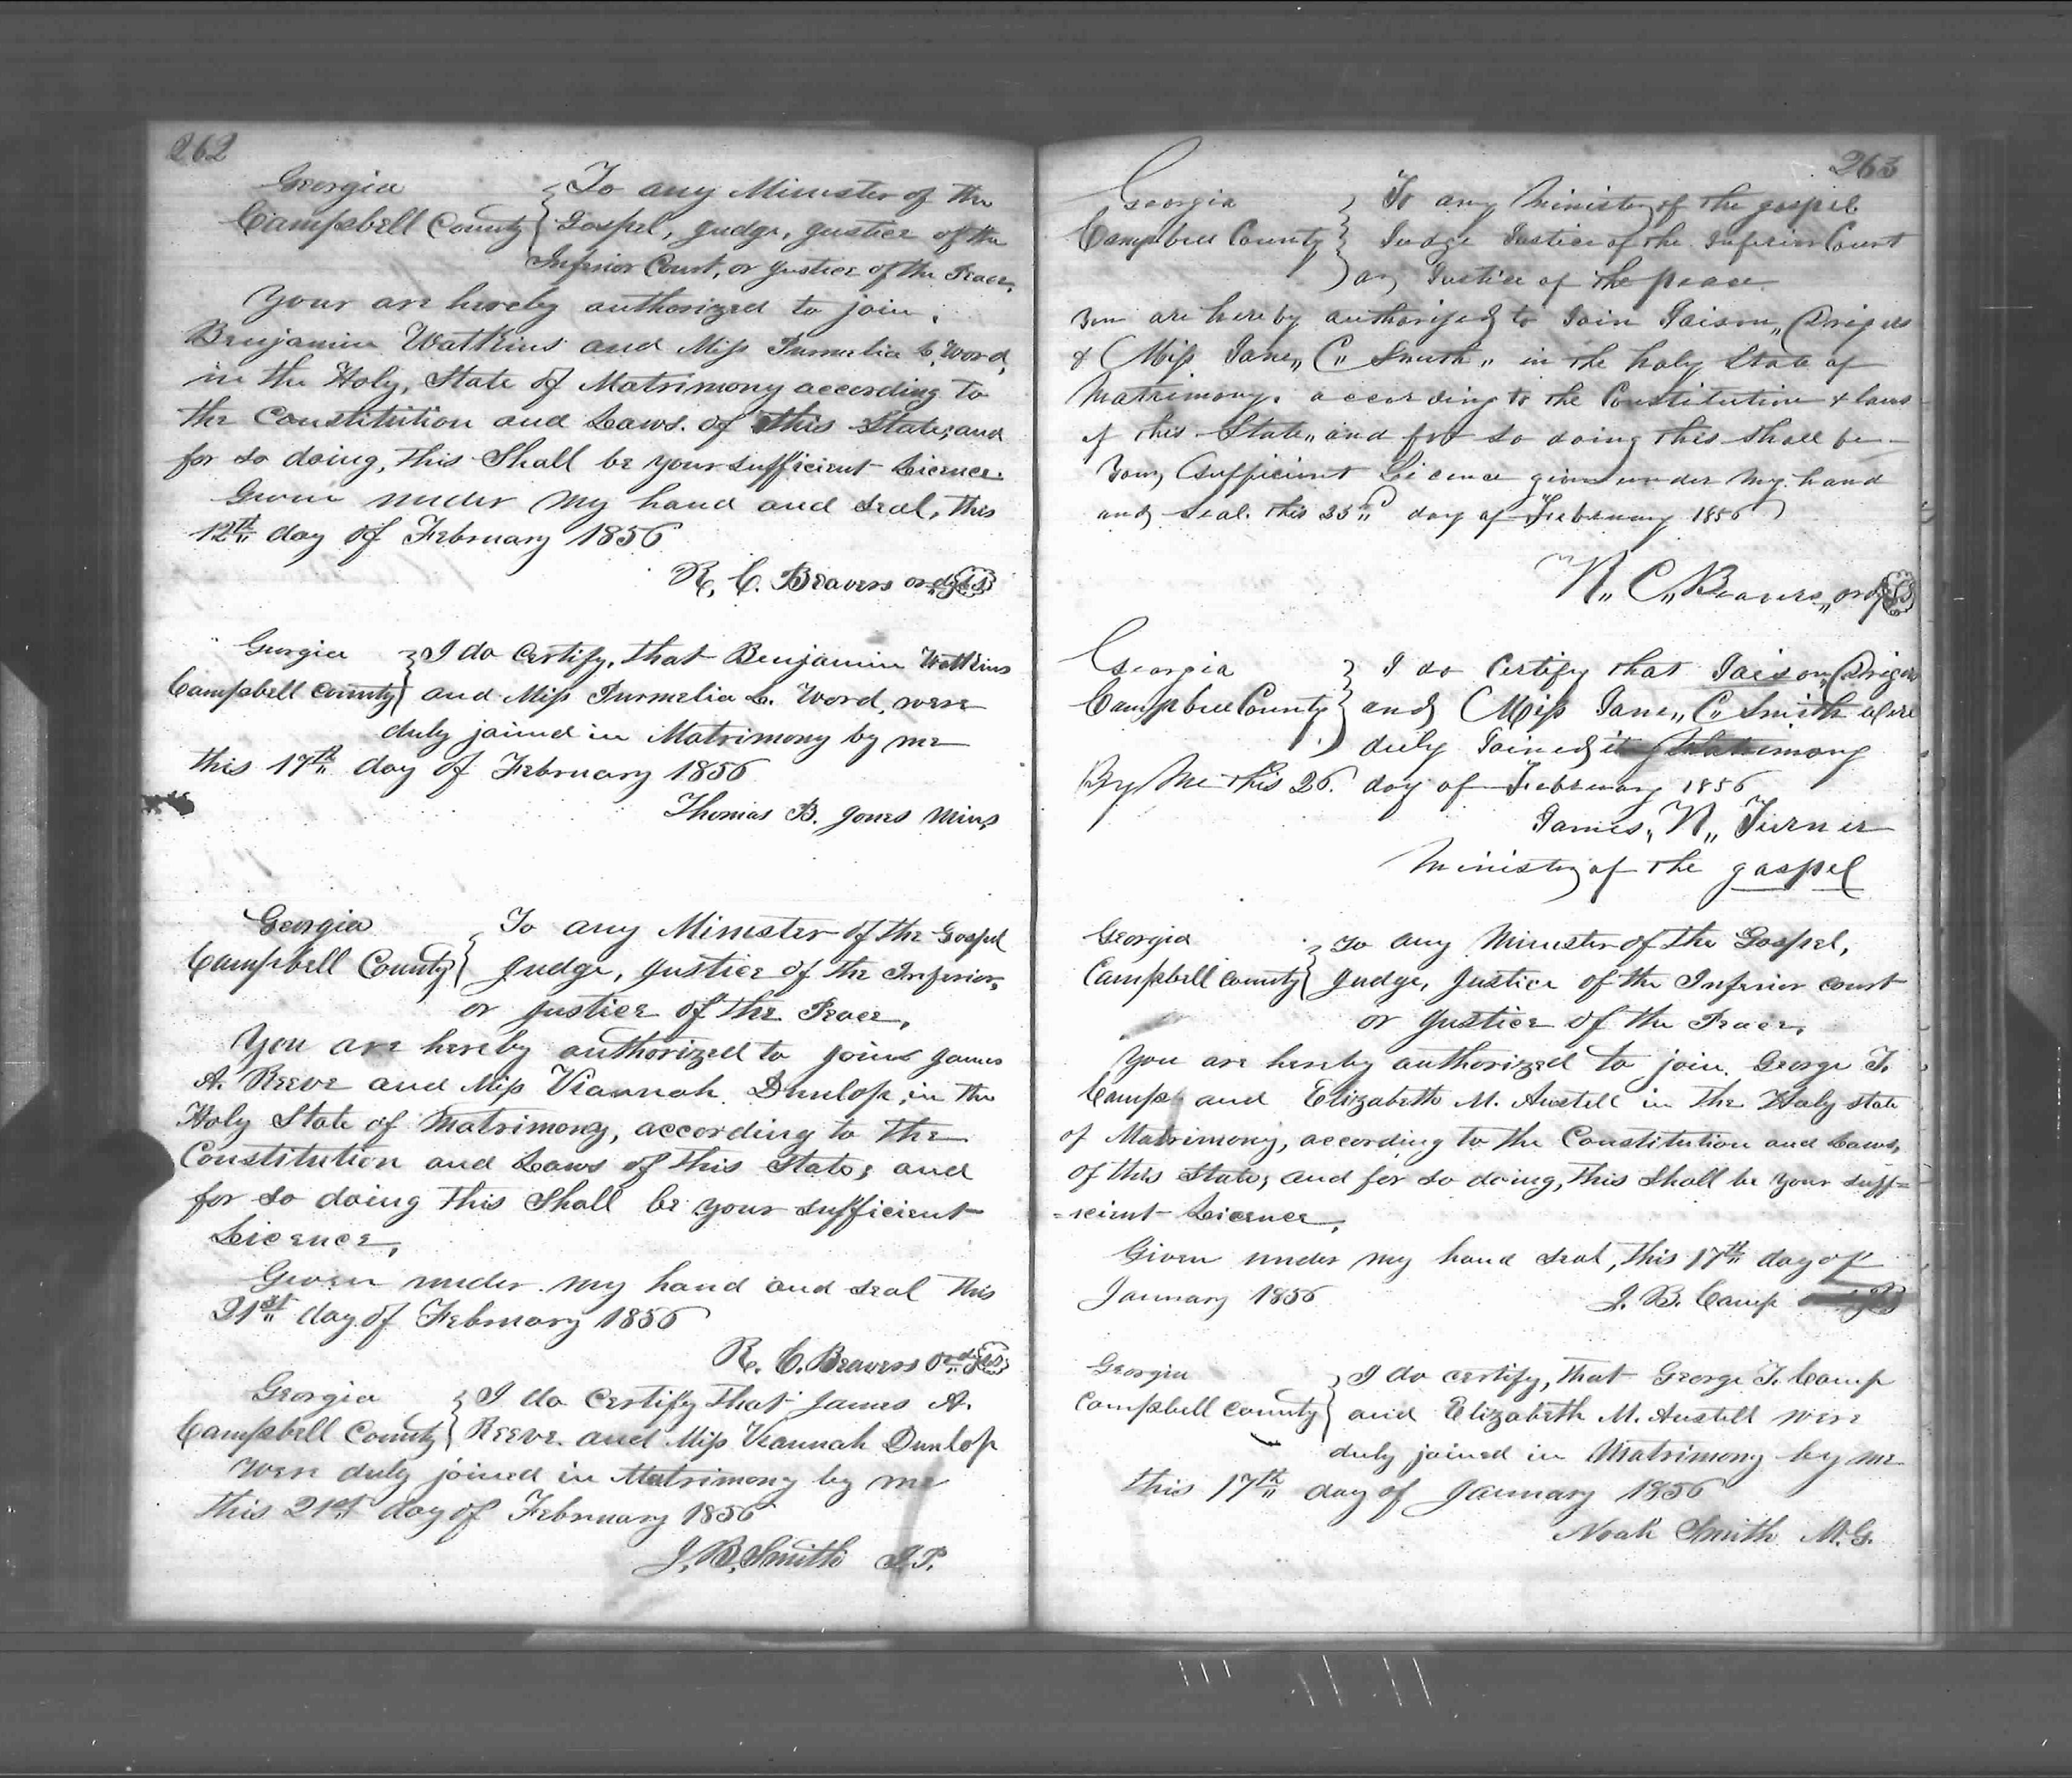 262
Georgia
Campbell County
To any Minister of the
Gospel, Judge, Justice of the
Inferior Court, or Justice of the Peace,
Your are hereby authorized to join,
Benjamin Watkins and Miss Purmelia L. Word,
in the Holy, State of Matrimony according to
the Constitution and Laws. of this State; and
for so doing, this Shall be your sufficient Licence.
Given under my hand and seal, this
12th day of February 1856
R. C. Beavers ordy LS
Georgia
Campbell County
I do certify, that Benjamin Watkins
and Miss Purmelia L. Word, were
duly joined in Matrimony by me
this 17th day of February 1856
Thomas B. Jones Mins
Georgia
Campbell County
To any Minister of the Gospel
Judge, Justice of the Inferior,
or Justice of the Peace,
You are hereby authorized to join James
A. Reeve and Miss Viannah Dunlop, in the
Holy State of Matrimony, according to the
Constitution and Laws of this State; and
for so doing this Shall be your sufficient
Licence,
Given under my hand and seal this
21st day of February 1856
R. C. Beavers Ordy LS
Georgia
Campbell County
I do Certify that James A.
Reeve. and Miss Viannah Dunlop
were duly joined in Matrimony by me
this 21st day of February 1856
J. B. Smith J.P.
263
Georgia
Campbell County
To any Minister of the gospel
Judge Justice of the Inferior Court
or Justice of the peace
You are hereby authorised to Join Jaison
& Miss Jane C Smith in the holy State of
Matrimony. according to the Constitution & laws
of this State and for so doing this shall be
Your Sufficient Licence given under my hand
and seal. this 25 day of February 1856
R C Beavers ordy LS
Georgia
Campbell County
I do Certify that Jaison
and Miss Jane C Smith were
duly Joined in Matrimony
By Me this 26. day of February 1856
James N Turner
Minister of the gospel
Georgia
Campbell County
To any Minister of the Gospel,
Judge, Justice of the Inferior court
or Justice of the Peace,
You are hereby authorized to join. George T.
Camp and Elizabeth M. Austell in the Holy state
of Matrimony, according to the Constitution and Laws,
of this State; and for so doing, this Shall be your suff=
=icient Licence,
Given under my hand seal, this 17th day of
January 1856
J. B. Camp
Georgia
Campbell County
I do certify, that George T. Camp
and Elizabeth M. Austell were
duly joined in Matrimony by me
this 17th day of January 1856
Noah Smith M.G.